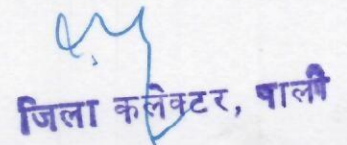 जिला कलेक्टर, पाली